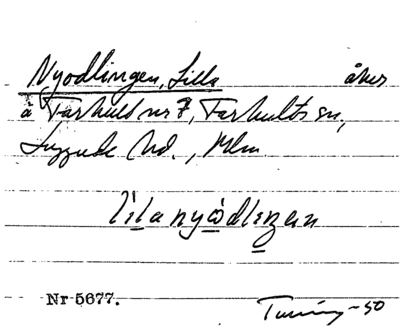 Nyodlingen, Lilla åker
å Farhult nr 7, Farhults sn,
Luggude hd., Mlm
lila nyödlingen
Nr 5677.